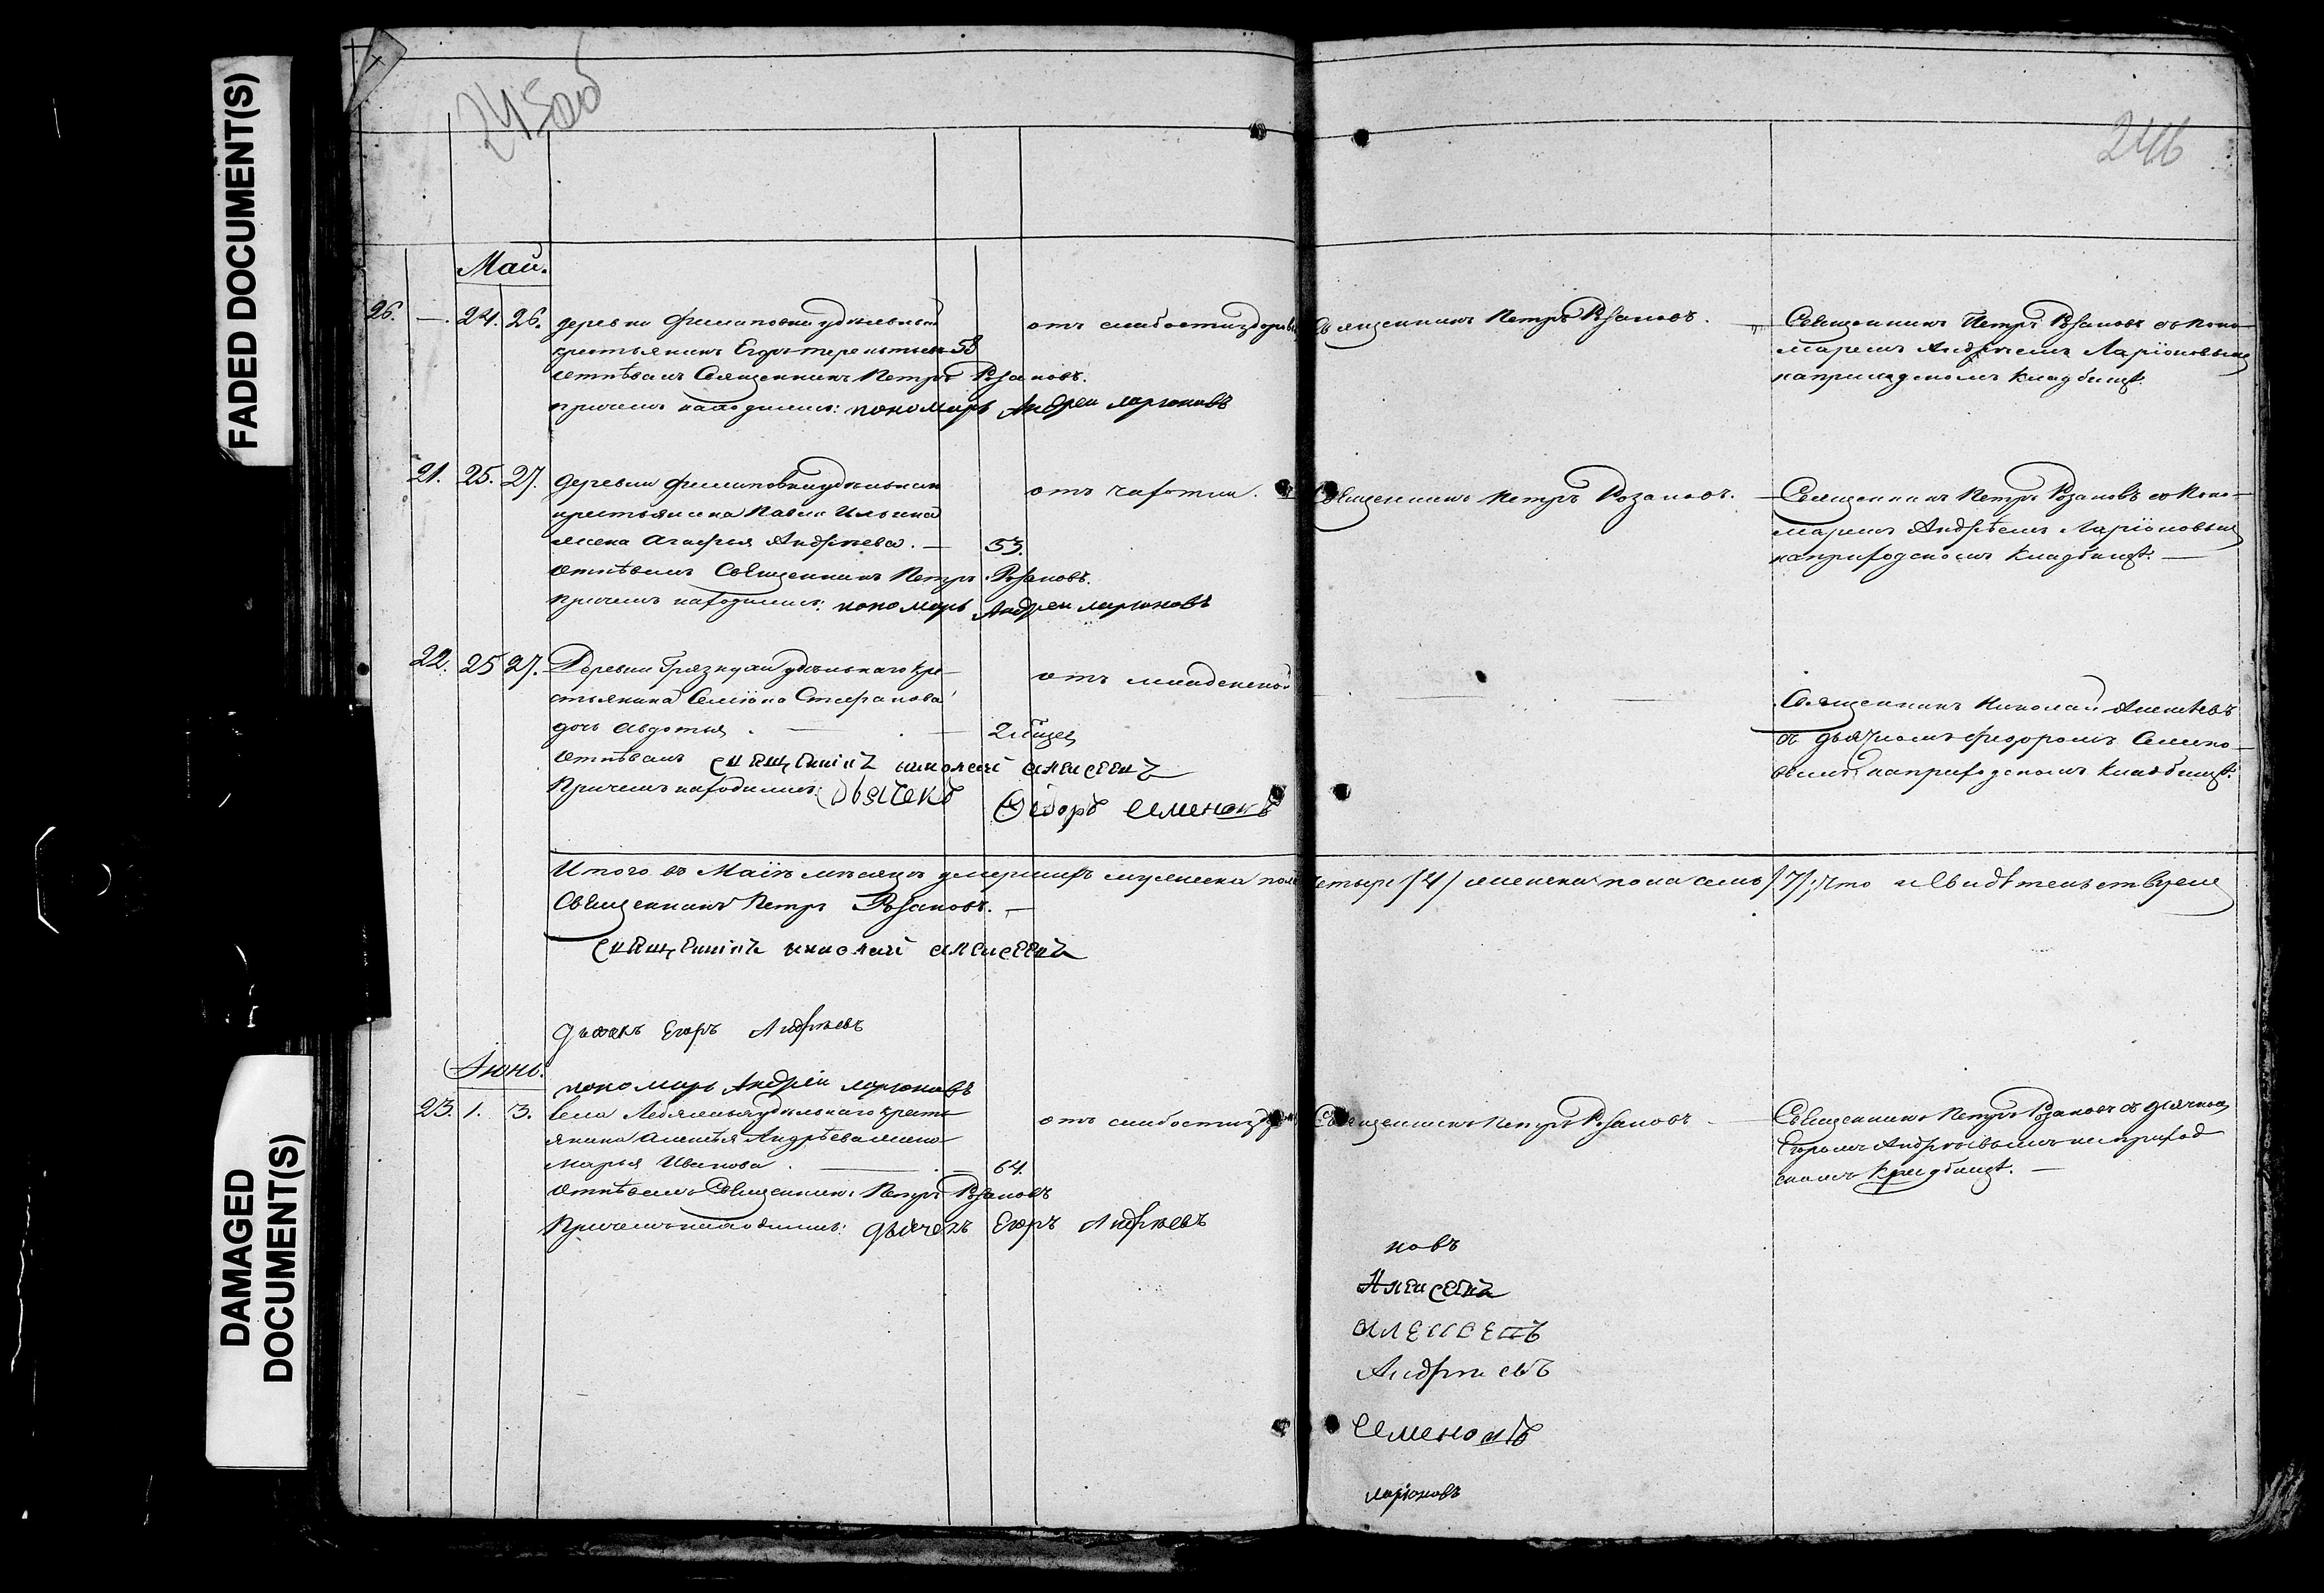 FADED DOCUMENT(S)
DAMAGED
DOCUMENT(S)
245об
246
Май.
26. — 24. 26. деревни Филиповки удельный
крестьянинъ Егоръ Терентьевъ 58
отпѣвалъ Священникъ Петръ Розановъ.
при чемъ находился: пономарь Андрей Ларионовъ
отъ слабости здоровья
Священникъ Петръ Розановъ.
Священникъ Петръ Розановъ съ поно-
маремъ Андреемъ Ларіоновымъ
на приходскомъ кладбищѣ.
21. 25. 27. деревни Филиповки удельнаго
крестьянина Павла Ильина
жена Агафья Андреева. — 53.
отпѣвалъ Священникъ Петръ Розановъ.
при чемъ находился: пономарь Андрей Ларионовъ
отъ чахотки.
Священникъ Петръ Розановъ.
Священникъ Петръ Розановъ съ поно-
маремъ Андрѣемъ Ларіоновымъ
на приходскомъ кладбищѣ. —
22. 25 27. Деревни Грязнухи удѣльнаго кре-
стьянина Семіона Стефанова
дочь Авдотья. — 2 мѣсяц
отпѣвалъ священникъ николай алексеевъ
При чемъ находился: Дьячекъ Ѳедоръ Семеновъ
отъ младенской
Священникъ Николай Алексѣевъ
съ дьячкомъ Федоромъ Семено-
вымъ на приходскомъ кладбищѣ.
Итого въ Маіѣ мѣсяцѣ умершихъ мужеска пола четыре /4/ женска пола семь /7/; что и свидѣтельствуемъ
Священникъ Петръ Розановъ. —
священникъ николай алексеевъ
дьячекъ Егоръ Андреевъ
Іюнь.
пономарь Андрей Ларионовъ
23. 1. 3. села удельнаго крестья-
янина Алексѣя Андрѣева жена
Марья Иванова. — 64.
отпѣвалъ Священникъ Петръ Розановъ
При чемъ находился: дьячекъ Егоръ Андреевъ
отъ слабости
Священникъ Петръ Розановъ
Священникъ Петръ Розановъ съ дьячкомъ
Егоромъ Андреевымъ на приход
скомъ кладбищѣ. —
новъ
Алексеевъ
алексеевъ
Андреевъ
Семеновъ
ларионовъ